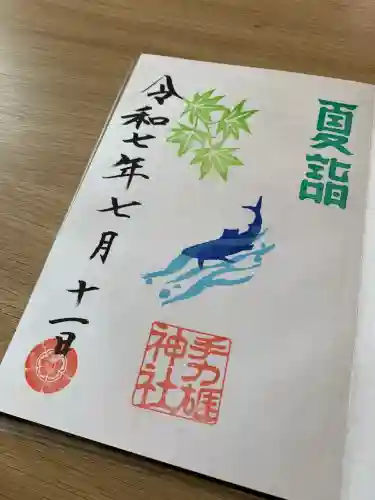 夏詣
手力雄
神社
令和七年七月十一日